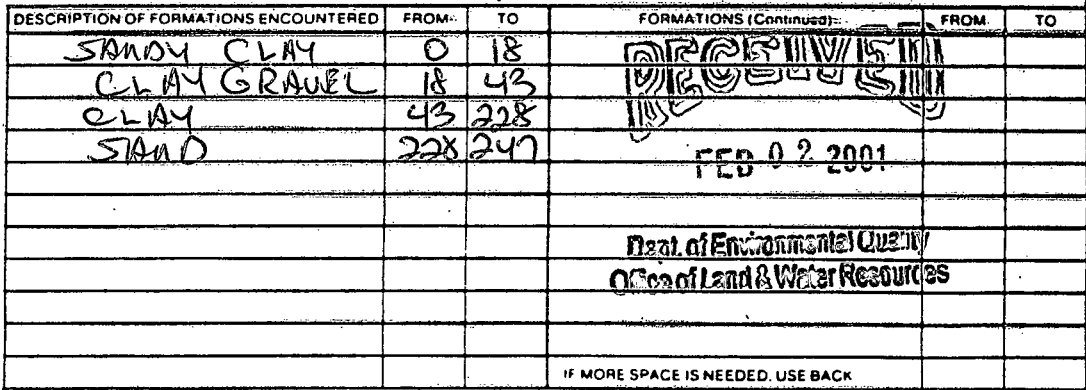 DESCRIPTION OF FORMATIONS ENCOUNTERED FROM TO FORMATIONS (Continued) FROM TO
SANDY CLAY 0 18
CLAY GRAVEL 18 43
CLAY 43 228
SAND 228 247
RECEIVED
FEB 02 2001
Dept. of Environmental Quality
Office of Land & Water Resources
IF MORE SPACE IS NEEDED, USE BACK